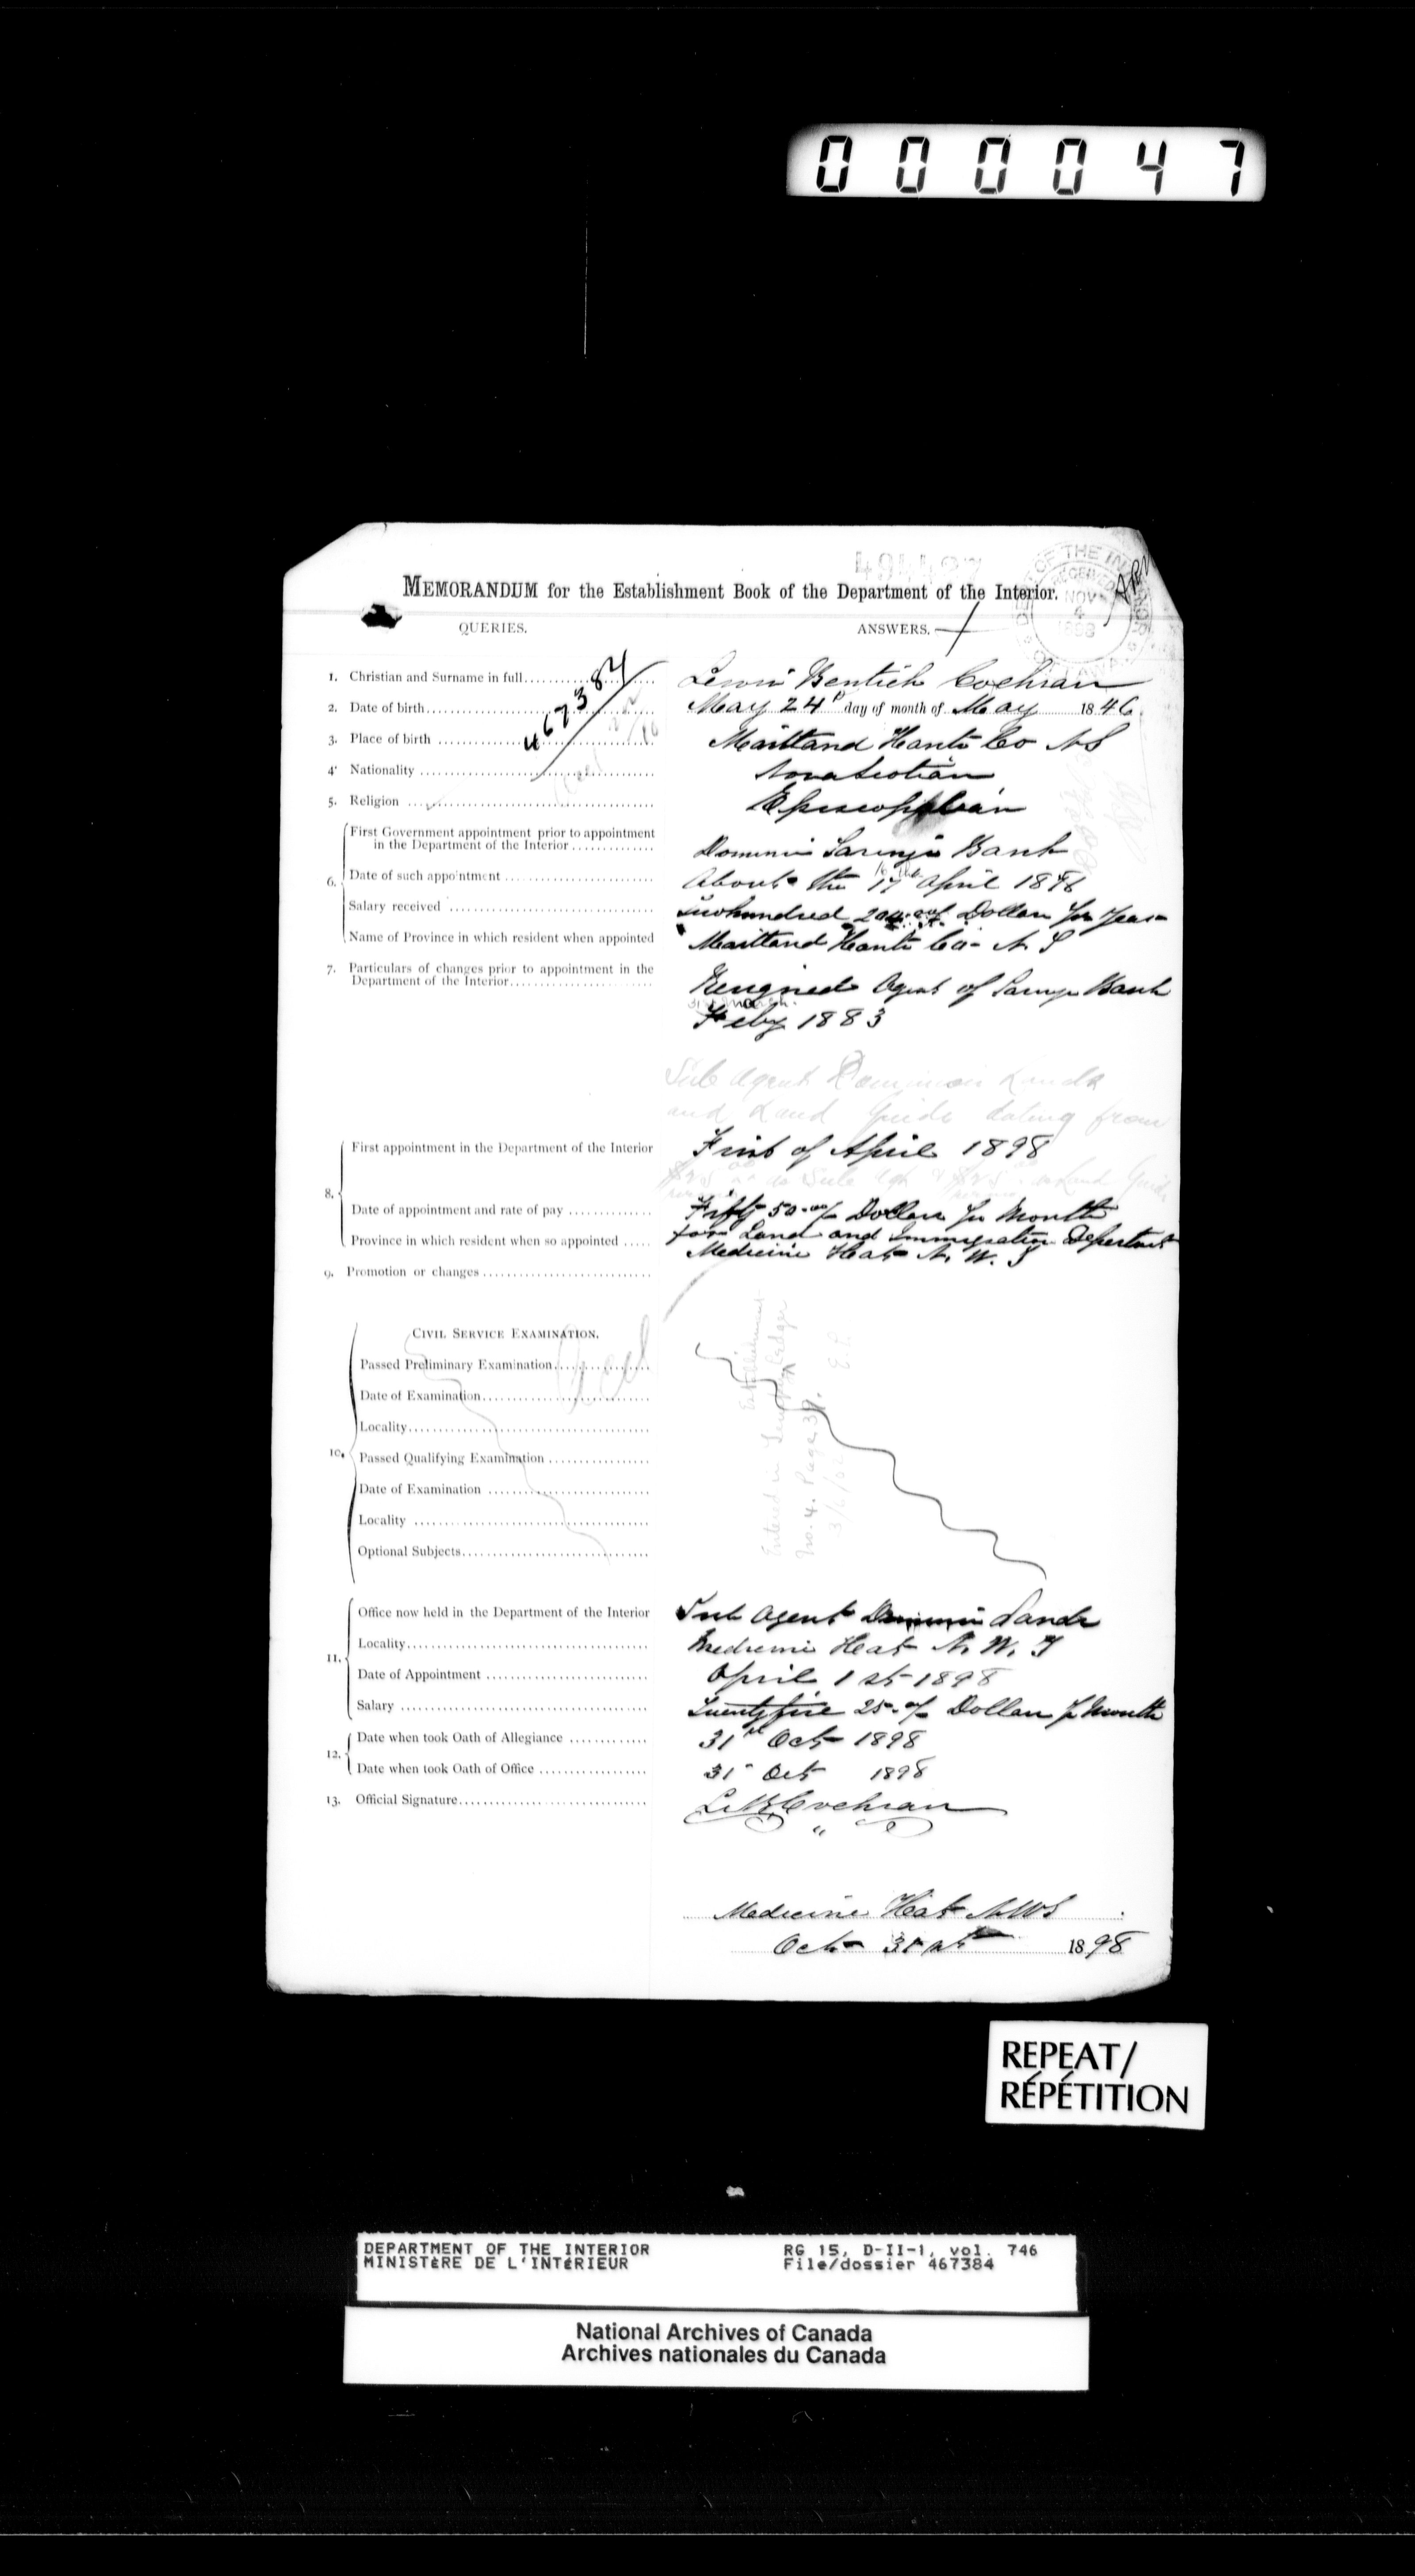 000047
494427
MEMORANDUM for the Establishment Book of the Department of the Interior.
DEPT OF THE INTERIOR RECEIVED NOV 4 1898 OTTAWA
QUERIES. ANSWERS.
467384
1. Christian and Surname in full Lewin Bentick Cochran
2. Date of birth May 24th day of month of May 1846
3. Place of birth Maitland Hants Co N S
4. Nationality Nova Scotian
5. Religion Episcopalian
6. First Government appointment prior to appointment
in the Department of the Interior Dominion Savings Bank
Date of such appointment About the 17th April 1876
Salary received Two hundred 200.00/ Dollars per Year
Name of Province in which resident when appointed Maitland Hants Co. N S
7. Particulars of changes prior to appointment in the
Department of the Interior Resigned Agent of Savings Bank
31st March.
Feby 1883
Sub Agent Dominion Lands
and Land Guide dating from
8. First appointment in the Department of the Interior First of April 1898
Date of appointment and rate of pay Fifty 50.00/ Dollars per Month
for Land and Immigration Department
Province in which resident when so appointed Medicine Hat N. W. T
9. Promotion or changes
Establishment
Entered in Ledger
No. 4. Page 37.
10. CIVIL SERVICE EXAMINATION.
Passed Preliminary Examination
Date of Examination
Locality
Passed Qualifying Examination
Date of Examination
Locality
Optional Subjects
11. Office now held in the Department of the Interior Sub Agent Dominion Lands
Locality Medicine Hat N. W. T
Date of Appointment April 1st 1898
Salary Twenty five 25.00/ Dollars per Month
12. Date when took Oath of Allegiance 31st Oct 1898
Date when took Oath of Office 31st Oct 1898
13. Official Signature L B Cochran
Medicine Hat NWT
Oct 31st 1898
REPEAT/
RÉPÉTITION
DEPARTMENT OF THE INTERIOR RG 15, D-II-1, vol. 746
MINISTÈRE DE L'INTÉRIEUR File/dossier 467384
National Archives of Canada
Archives nationales du Canada